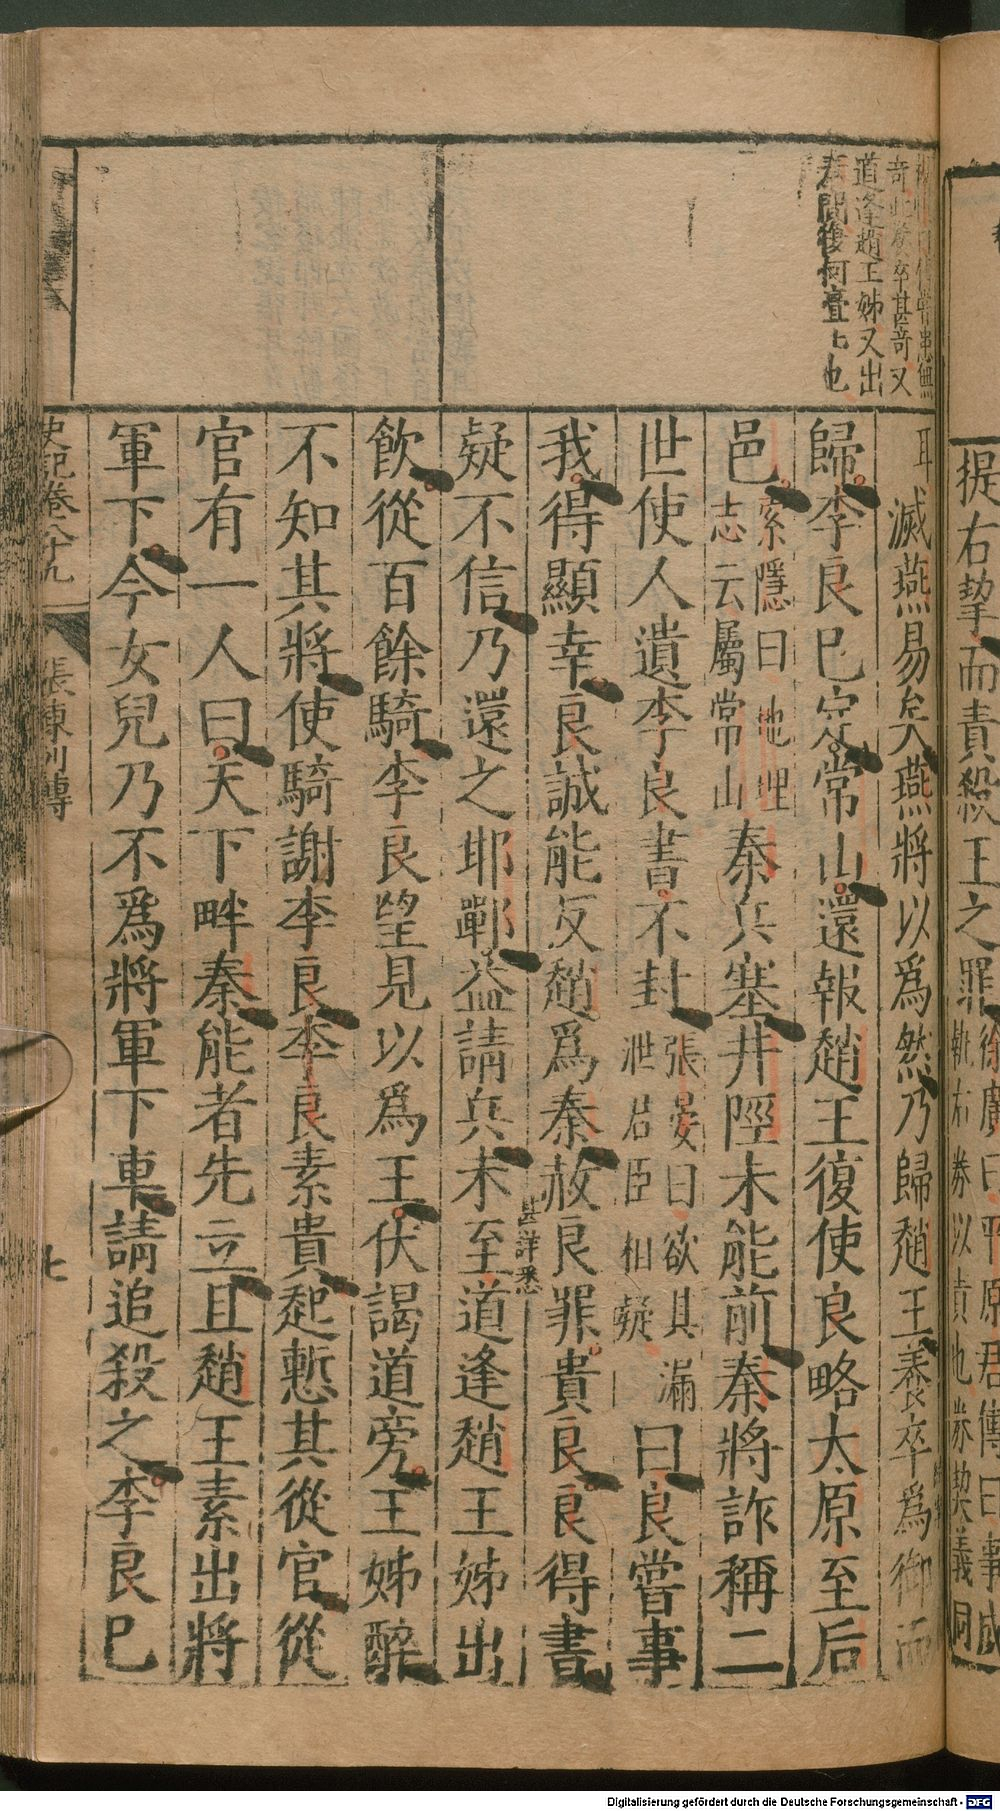 提右挈而責殺王之罪
滅燕易矣燕將以爲然乃歸趙王養卒爲御而
歸李良已定常山還報趙王復使良略太原至石
邑
索隱曰地理
志云屬常山
秦兵塞井陘未能前秦將詐稱二
世使人遺李良書不封
張晏曰欲其漏
泄君臣相疑
曰良嘗事
我得顯幸良誠能反趙爲秦赦良罪貴良良得書
甚詳悉
疑不信乃還之邯鄲益請兵未至道逢趙王姊出
飲從百餘騎李良望見以爲王伏謁道旁王姊醉
不知其將使騎謝李良李良素貴起慙其從官從
官有一人曰天下畔秦能者先立且趙王素出將
軍下今女兒乃不爲將軍下車請追殺之李良已
道逢趙王姊又出
史記卷八十九
張陳列傳
七
Digitalisierung gefördert durch die Deutsche Forschungsgemeinschaft - DFG